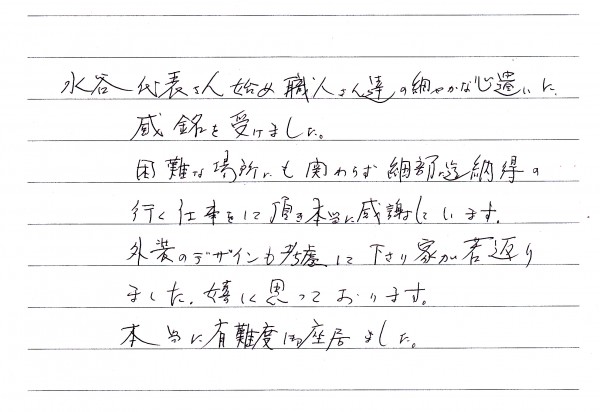 水谷代表さん始め職人さん達の細やかな心遣いに
感銘を受けました。
困難な場所にも関わらず細部迄納得の
行く仕事をして頂き本当に感謝しています。
外装のデザインも考慮して下さり家が若返り
ました。嬉しく思っております。
本当に有難度う座居ました。